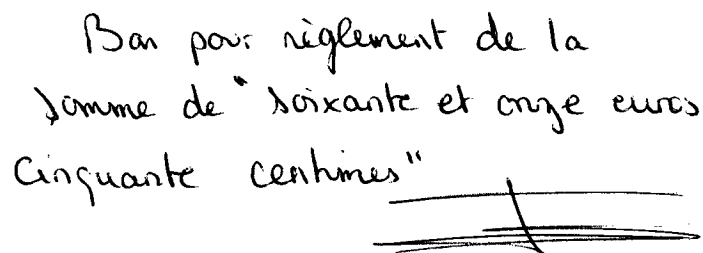 Bon pour règlement de la
somme de "soixante et onze euros
cinquante centimes"